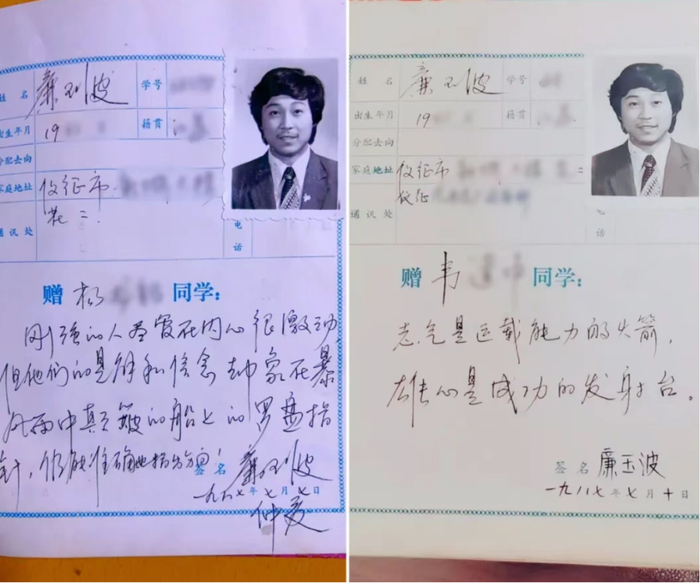 姓 名 廉玉波 学号
出生年月 19 籍贯
分配去向
家庭地址 仪征市
通讯处
电话
赠 杨 同学:
刚强的人尽管在内心很激动
但他们的见解和信念却象在暴
风雨中颠簸的船上的罗盘指
针,仍能准确地指出方向!
签名 廉玉波
一九八七年七月七日
仲夏
姓 名 廉玉波 学号
出生年月 19 籍贯
分配去向
家庭地址 仪征市
仪征
通讯处
电
赠 韦 同学:
志气是运载能力的火箭,
雄心是成功的发射台。
签名 廉玉波
一九八七年七月十日